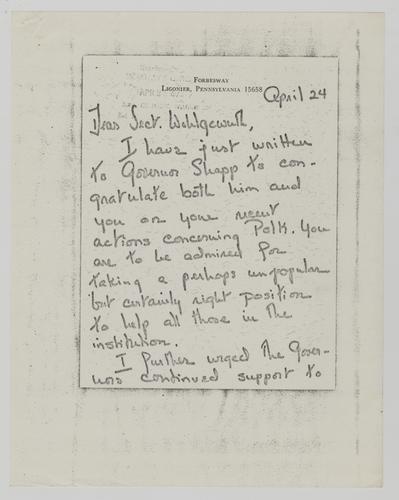 Forbesway
Ligonier, Pennsylvania 15658
April 24
Dear Sect. Wohlgemuth,
I have just written
to Governor Shapp to con-
gratulate both him and
you on your recent
actions concerning Polk. You
are to be admired for
taking a perhaps unpopular
but certainly right position
to help all those in the
institution.
I further urged the Gover-
nors continued support to